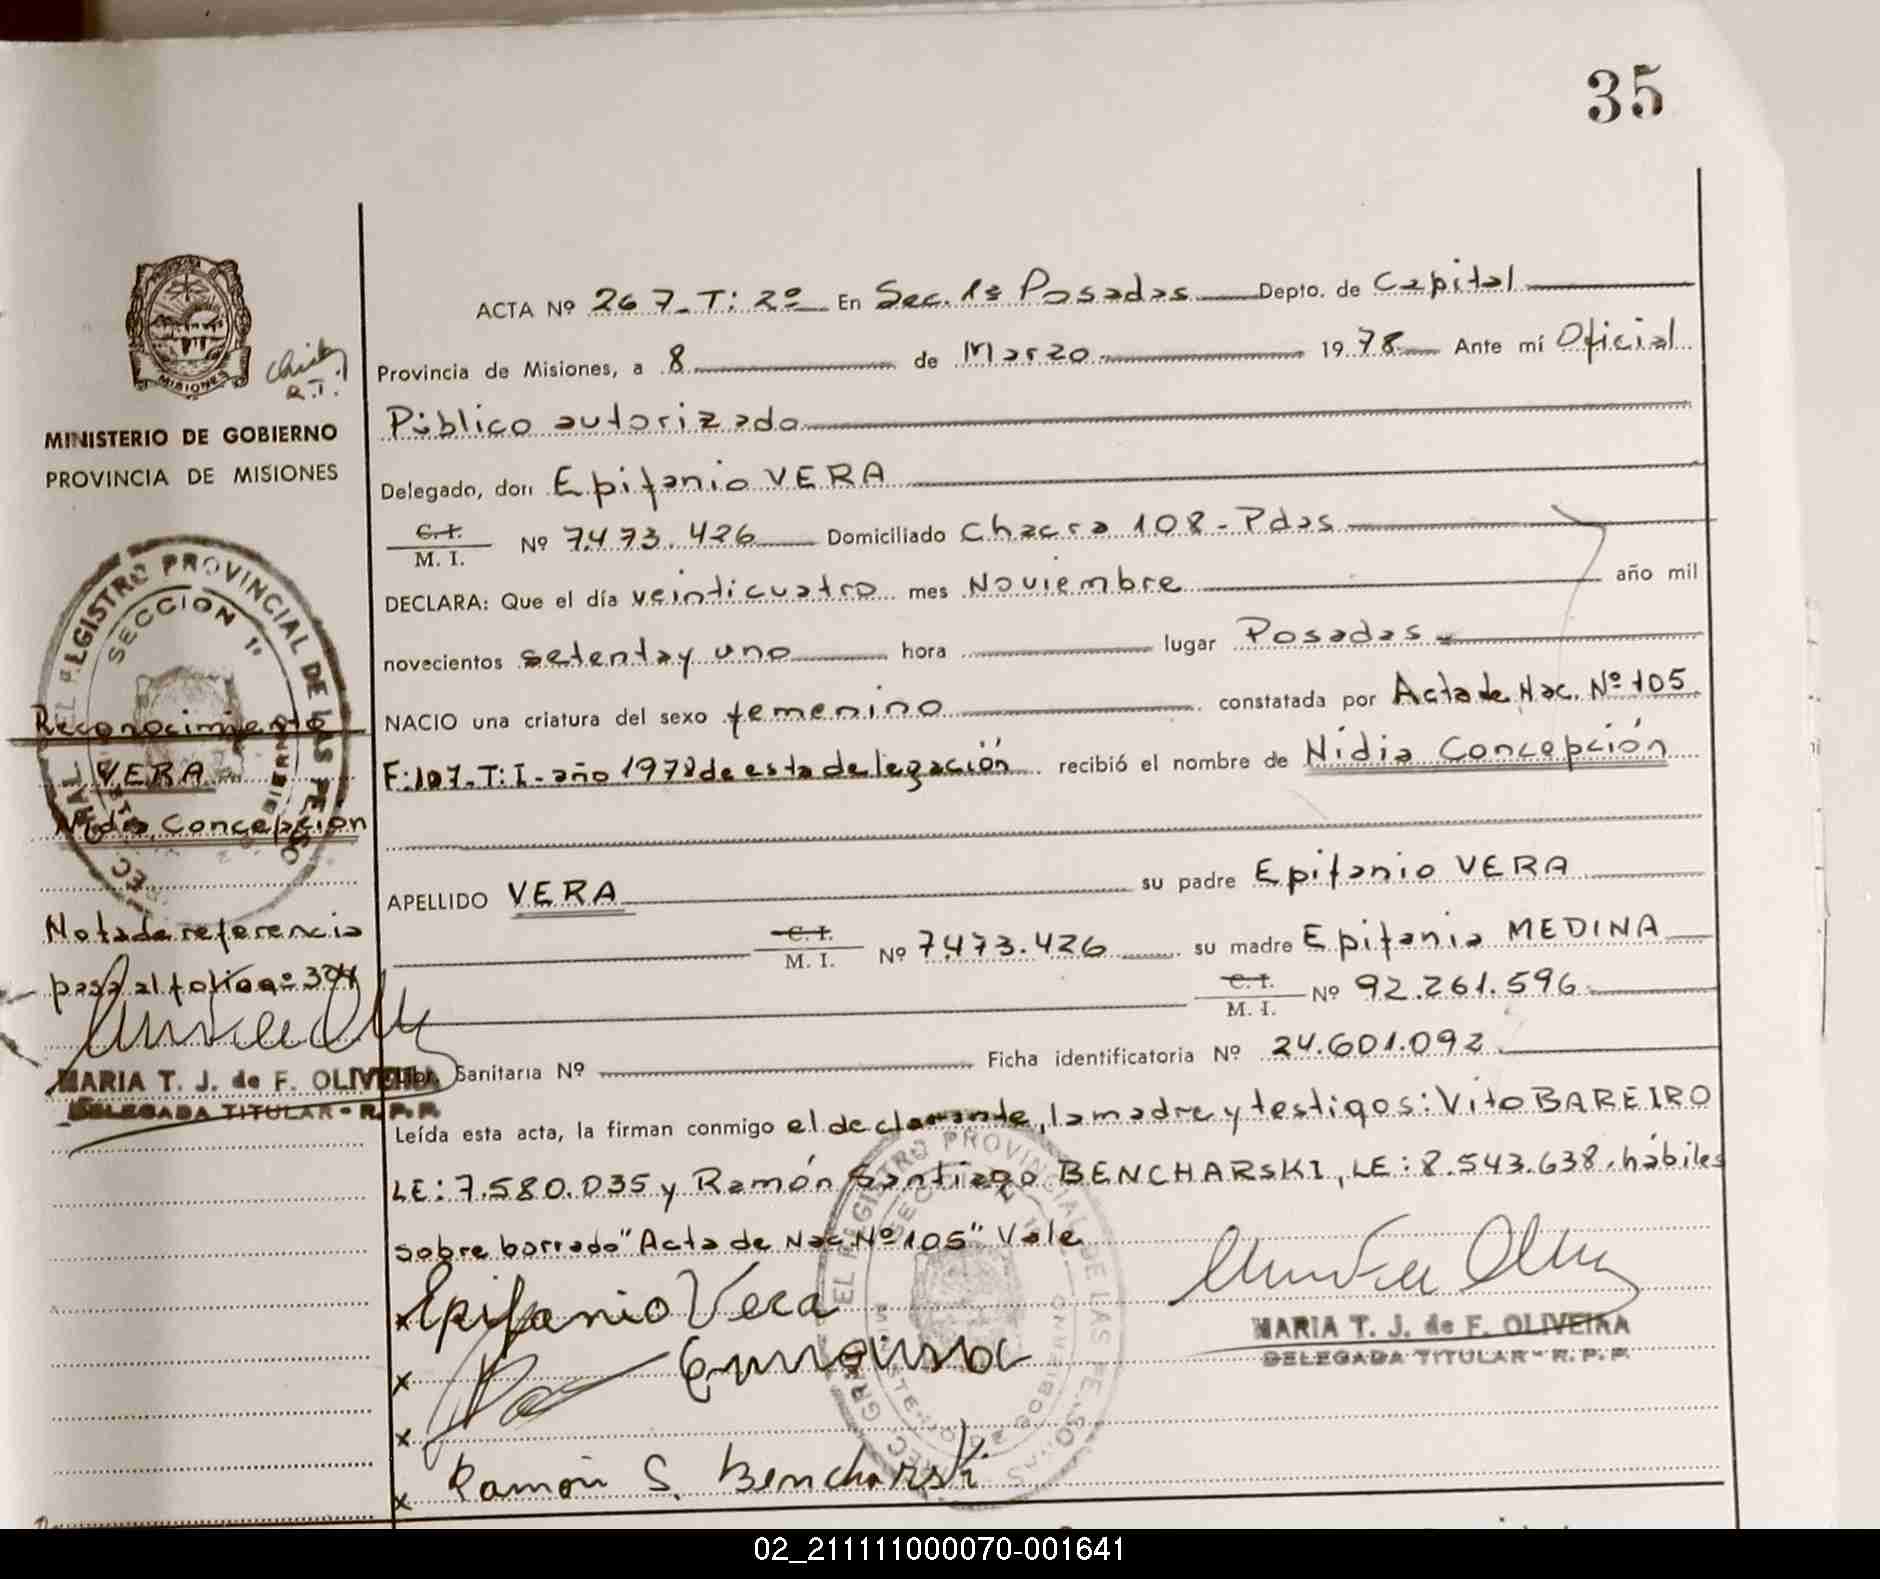 35
ACTA Nº 267_T: 2º En Sec. 1ª Posadas Depto. de Capital
Provincia de Misiones, a 8 de Marzo 1978 Ante mí Oficial
Público autorizado
Delegado, don Epifanio VERA
C.I.
M. I. Nº 7.473.426 Domiciliado Chacra 108 - Pdas
DECLARA: Que el día veinticuatro mes Noviembre año mil
novecientos setenta y uno hora lugar Posadas
NACIO una criatura del sexo femenino constatada por Acta de Nac. Nº 105
F: 107. T: I - año 1978 de esta delegación recibió el nombre de Nidia Concepción
APELLIDO VERA su padre Epifanio VERA
C.I.
M. I. Nº 7.473.426 su madre Epifania MEDINA
C.I.
M. I. Nº 92.261.596
Sanitaria Nº Ficha identificatoria Nº 24.601.092
Leída esta acta, la firman conmigo el declarante, la madre y testigos: Vito BAREIRO
LE: 7.580.035 y Ramón Santiago BENCHARSKI, LE: 8.543.638. hábiles
sobre borrado "Acta de Nac. Nº 105" Vale
x Epifanio Vera
x
x
x Ramón S. Bencharski
MARIA T. J. de F. OLIVEIRA
DELEGADA TITULAR - R. P. P.
MISIONES
MINISTERIO DE GOBIERNO
PROVINCIA DE MISIONES
REGISTRO PROVINCIAL DE LAS PERSONAS
SECCION 1ª
Reconocimiento
VERA
Nidia Concepción
Nota de referencia
pasa al folio nº 394
MARIA T. J. de F. OLIVEIRA
DELEGADA TITULAR - R. P. P.
EL REGISTRO PROVINCIAL DE LAS PERSONAS
02_211111000070-001641